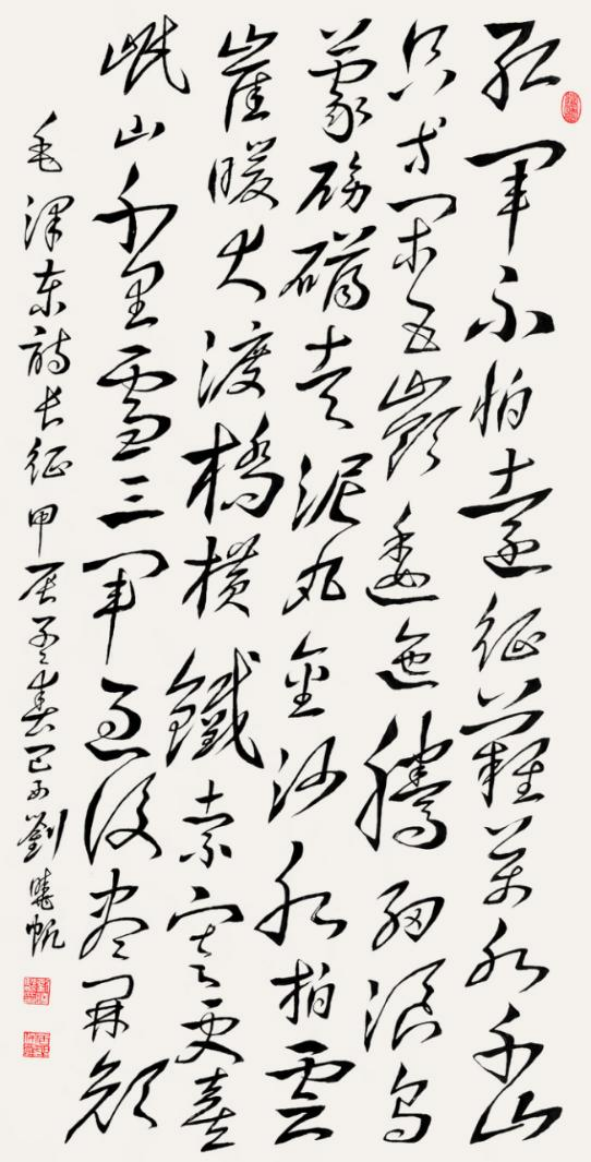 红軍不怕遠征難萬水千山
只等閑五嶺逶迤騰细浪烏
蒙磅礴走泥丸金沙水拍雲
崖暖大渡橋横鐵索寒更喜
岷山千里雪三軍過後尽開顔
毛澤東詩長征甲辰春劉曉帆